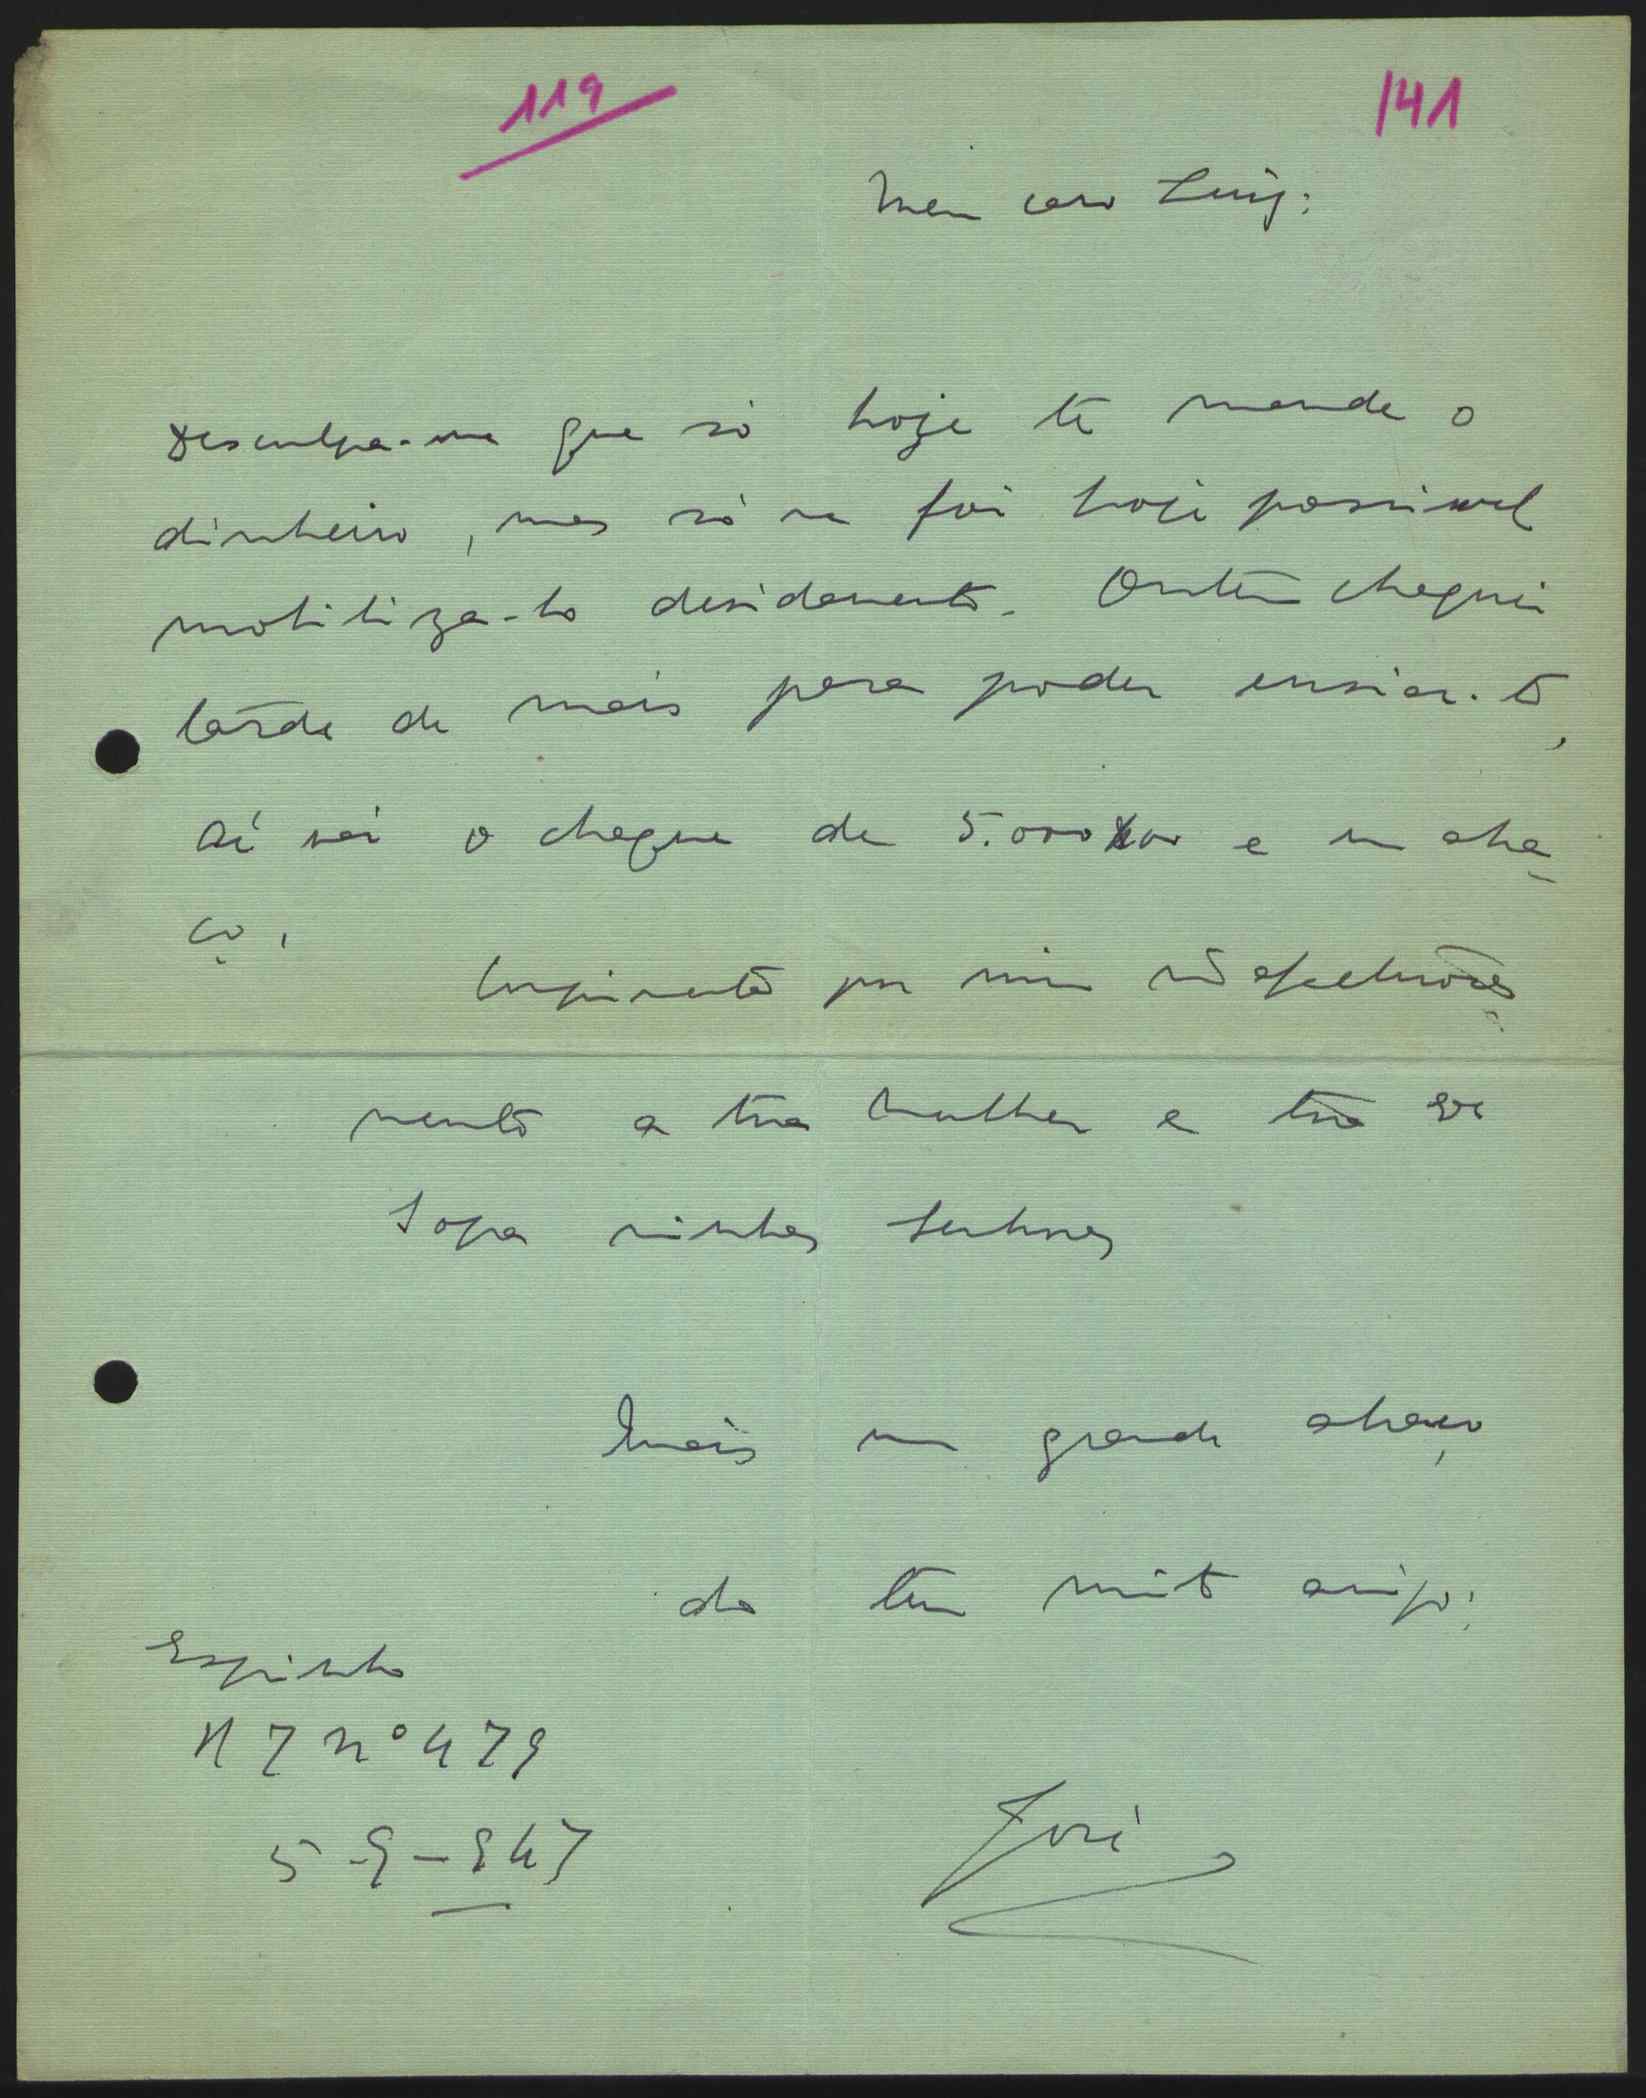 119
141
Meu caro Luiz:
Desculpa-me que só hoje te mande o
dinheiro, mas só me foi hoje possivel
mobiliza-lo devidamente. Ontem cheguei
tarde de mais para poder enviar-to,
Aí vai o cheque de 5.000$00 e um abra-
ço.
Cumprimenta por mim afectuosa-
mente a tua Mulher e tua
Sogra minhas Senhoras
Mais um grande abraço
do teu muito amigo:
Espinho
R 7 nº 479
5-9-947
José